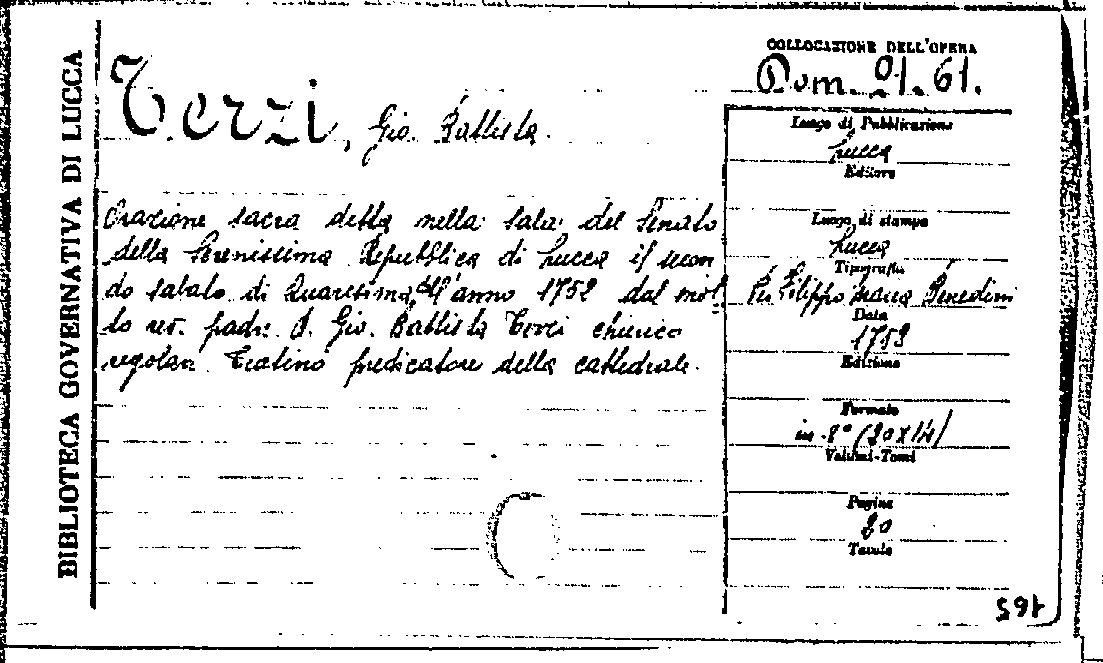 BIBLIOTECA GOVERNATIVA DI LUCCA
Terzi, Gio. Battista.
Orazione sacra detta nella sala del Senato
della Serenissima Repubblica di Lucca il secon
do sabato di Quaresima dell'anno 1752 dal mol
to rev. padre D. Gio. Battista Terzi chierico
regolare Teatino predicatore della cattedrale.
COLLOCAZIONE DELL'OPERA
Dom. 21. 61.
Luogo di Pubblicazione
Lucca
Editore
Luogo di stampa
Lucca
Tipografia
Per Filippo Maria Benedini
Data
1752
Edizione
Formato
in-8° (20x14)
Volumi-Tomi
Pagine
20
Tavole
165